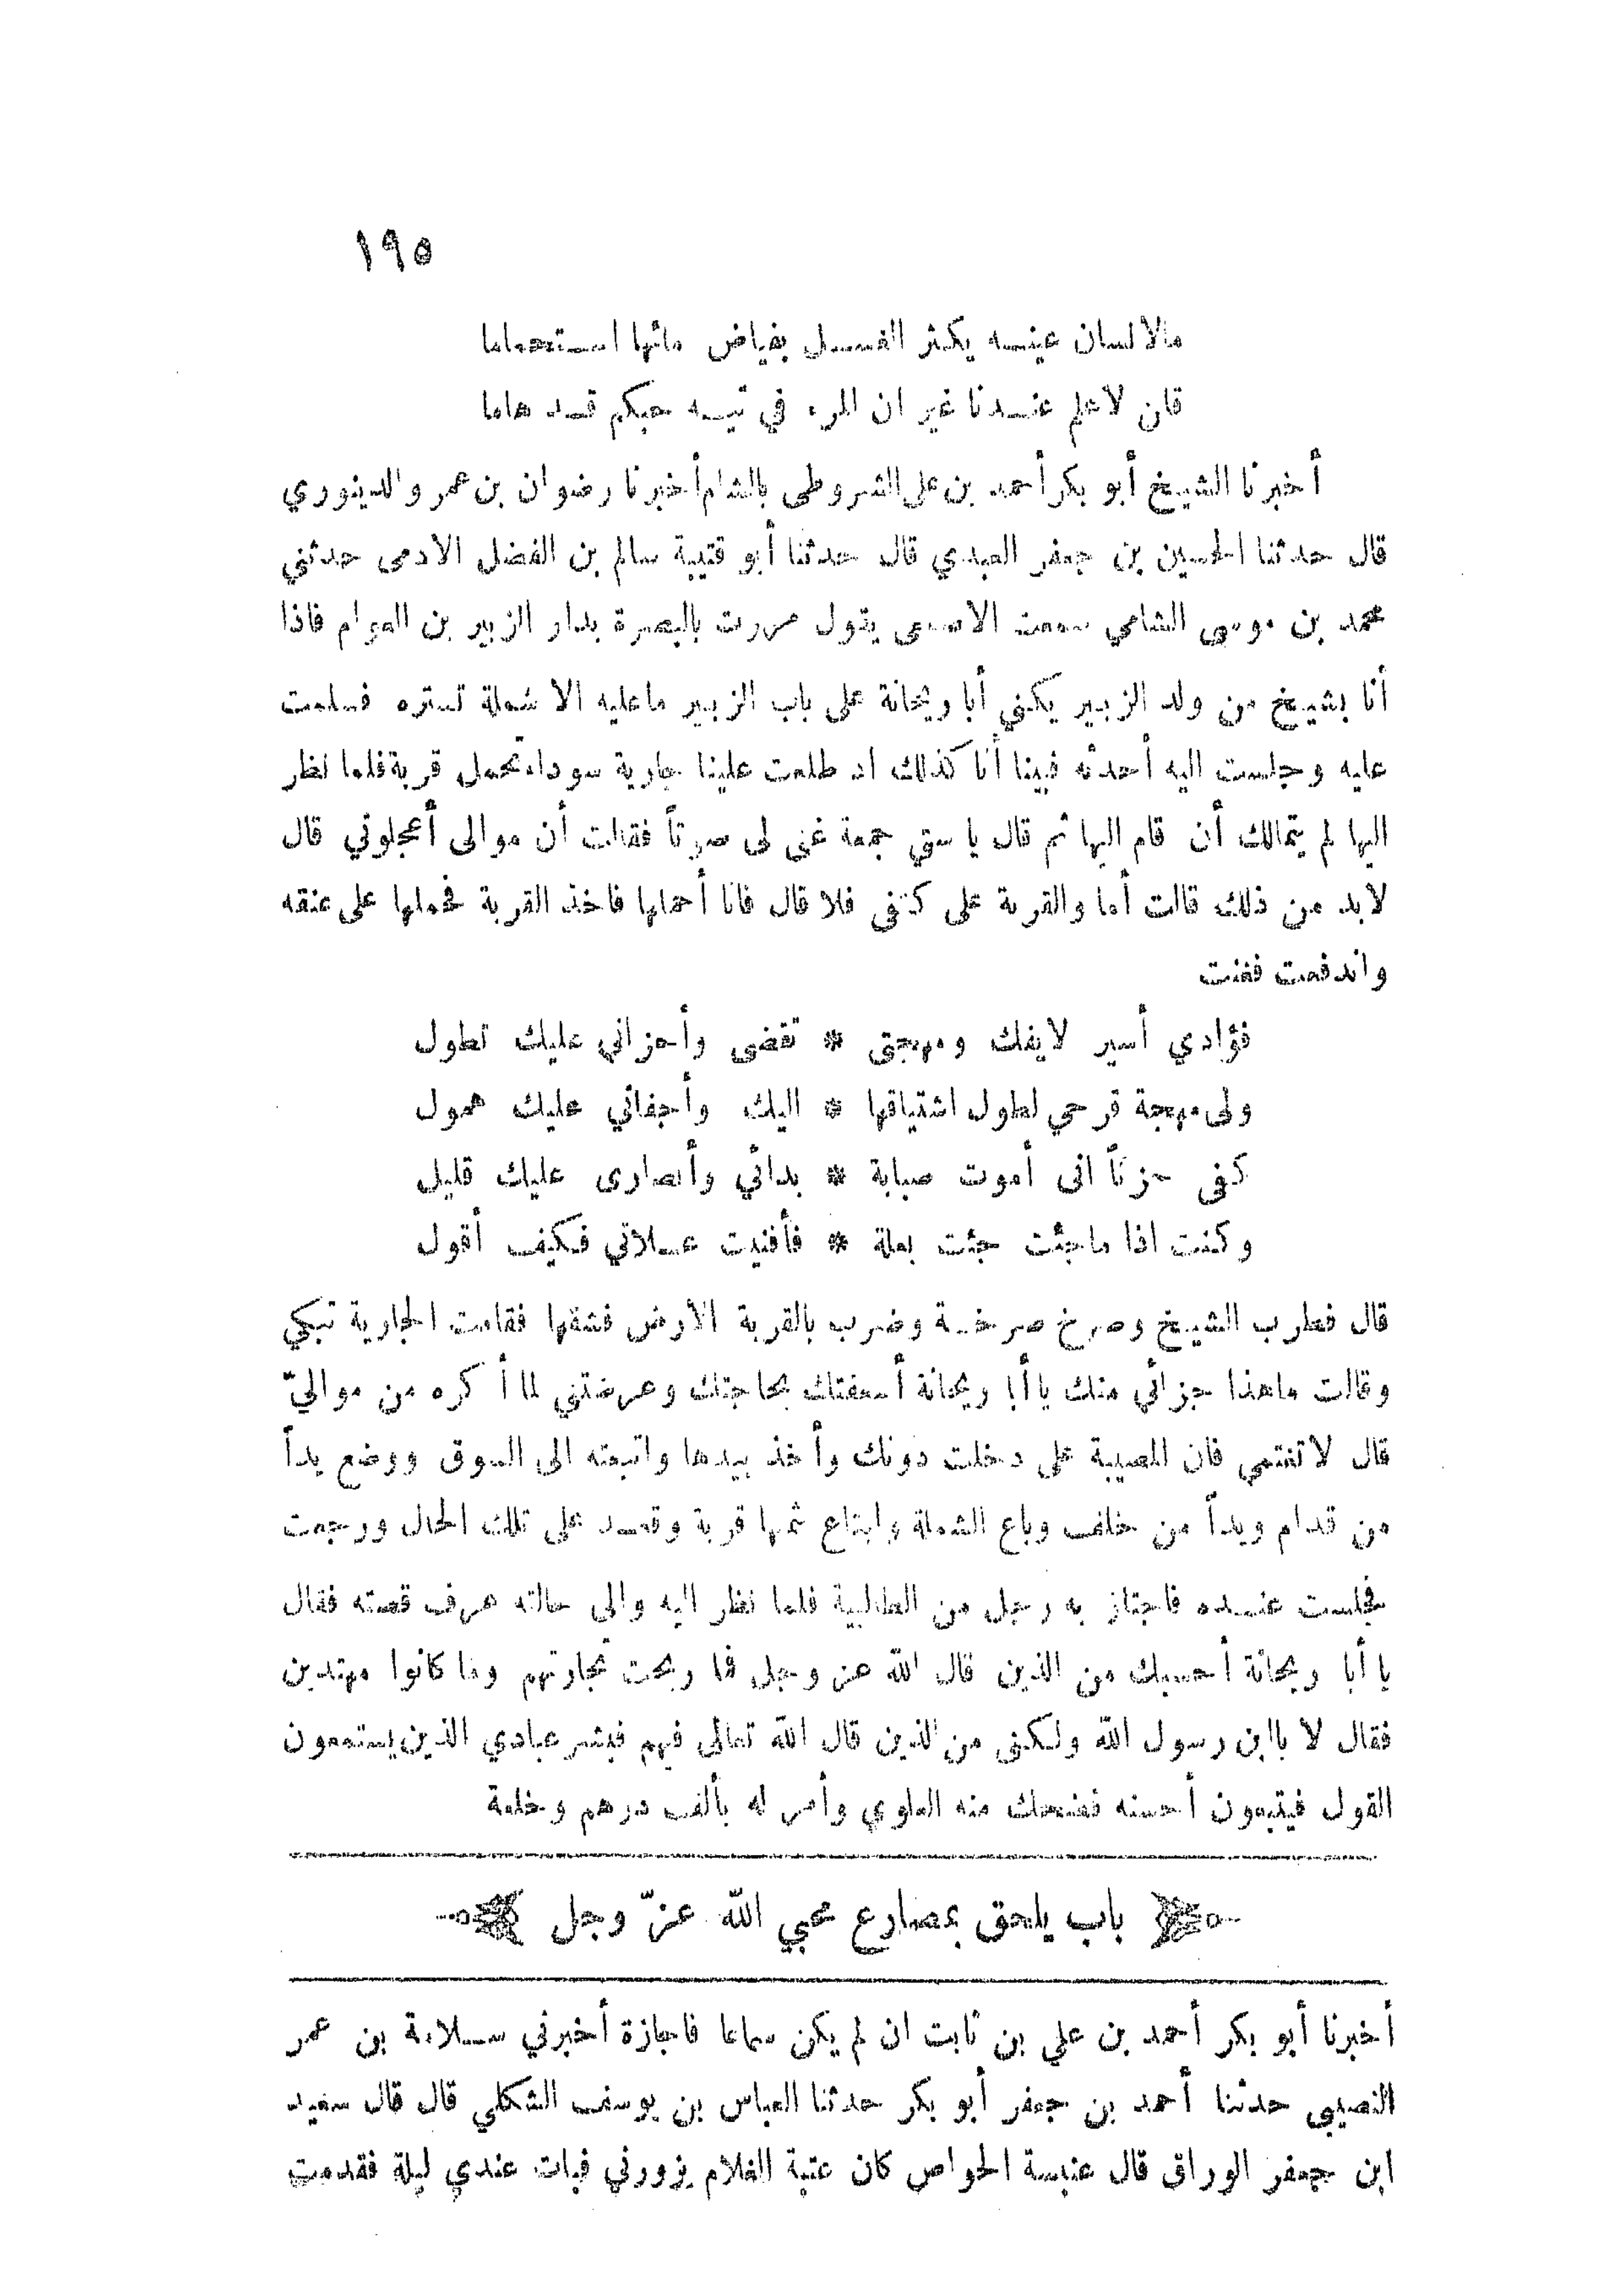 ١٩٥
مالا لسان عينه يكثر الغسل بفياض مائها استحماما
قان لاعلم عندنا غير ان المرء في تيه حبكم قد هاما
أخبرنا الشيخ أبو بكر أحمد بن على الشروطى بالشام أخبرنا رضوان بن عمر والدينوري
قال حدثنا الحسين بن جعفر العبدي قال حدثنا أبو قتيبة سالم بن الفضل الادمى حدثني
محمد بن موسى الشامي سمعت الاصمعى يقول مررت بالبصرة بدار الزبير بن العوام فاذا
أنا بشيخ من ولد الزبير يكنى أبا ريحانة على باب الزبير ماعليه الا شملة تستره فسلمت
عليه وجلست اليه أحدثه فبينا أنا كذلك اذ طلعت علينا جارية سوداء تحمل قربة فلما نظر
اليها لم يتمالك أن قام اليها ثم قال يا ستي جمعة غنى لى صوتاً فقالت أن موالى أعجلوني قال
لابد من ذلك قالت أما والقربة على كتفى فلا قال فانا أحملها فاخذ القربة فحملها على عنقه
واندفعت فغنت
فؤادي أسير لايفك ومهجتى * تقضى وأحزاني عليك تطول
ولى مهجة قرحي لطول اشتياقها * اليك وأجفاني عليك همول
كفى حزناً انى أموت صبابة * بدائي وأنصارى عليك قليل
وكنت اذا ماجئت جئت بعلة * فأفنيت علاتي فكيف أقول
قال فطرب الشيخ وصرخ صرخة وضرب بالقربة الارض فشقها فقامت الجارية تبكي
وقالت ماهذا جزائي منك ياأبا ريحانة أسعفتك بحاجتك وعرضتني لما أكره من موالىّ
قال لاتغتمي فان المصيبة على دخلت دونك وأخذ بيدها واتبعته الى السوق ووضع يداً
من قدام ويداً من خلف وباع الشملة وابتاع ثمنها قربة وقعد على تلك الحال ورجعت
فجلست عنده فاجتاز به رجل من الطالبية فلما نظر اليه والى حالته عرف قصته فقال
يا أبا ريحانة أحسبك من الذين قال الله عز وجل فما ربحت تجارتهم وما كانوا مهتدين
فقال لا ياابن رسول الله ولكنى من الذين قال الله تعالى فيهم فبشر عبادي الذين يستمعون
القول فيتبعون أحسنه فضحك منه العلوي وأمر له بألف درهم وخلعة
باب يلحق بمصارع محبي الله عزّ وجل
أخبرنا أبو بكر أحمد بن علي بن ثابت ان لم يكن سماعا فاجازة أخبرني سلامة بن عمر
النصيبى حدثنا أحمد بن جعفر أبو بكر حدثنا العباس بن يوسف الشكلي قال قال سعيد
ابن جعفر الوراق قال عنبسة الخواص كان عتبة الغلام يزورني فبات عندي ليلة فقدمت